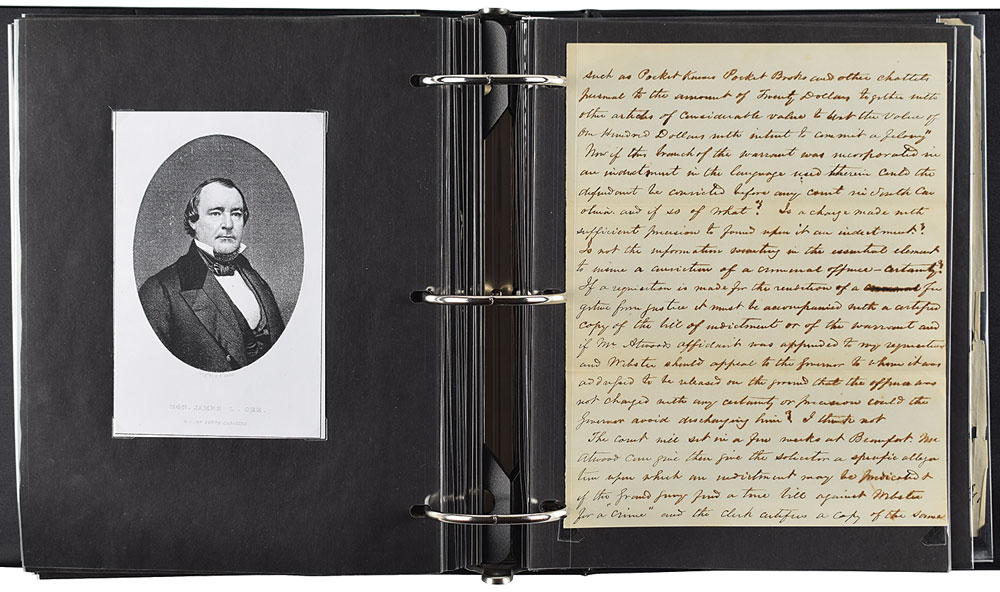 HON. JAMES L. ORR.
OF SOUTH CAROLINA
such as Pocket Knives Pocket Books and other chattels
personal to the amount of Twenty Dollars together with
other articles of considerable value to wit the value of
One Hundred Dollars with intent to commit a felony"
Now if this branch of the warrant was incorporated in
an indictment in the language used therein could the
defendant be convicted before any court in South Car
olina and if so of what? Is a charge made with
sufficient precision to found upon it an indictment?
Is not the information wanting in the essential element
to insure a conviction of a criminal offence – certainty?
If a requisition is made for the rendition of a fu
gitive from justice it must be accompanied with a certified
copy of the bill of indictment or of the warrant and
if Mr Atwoods affidavit was appended to my requisition
and Webster should appeal to the Governor to whom it was
addressed to be released on the ground that the offence was
not charged with any certainty or precision could the
Governor avoid discharging him? I think not
The court will sit in a few weeks at Beaufort. Mr
Atwood can give then give the solicitor a specific allega
tion upon which an indictment may be predicated &
if the Grand jury find a true bill against Webster
for a "Crime" and the clerk certifies a copy of the same